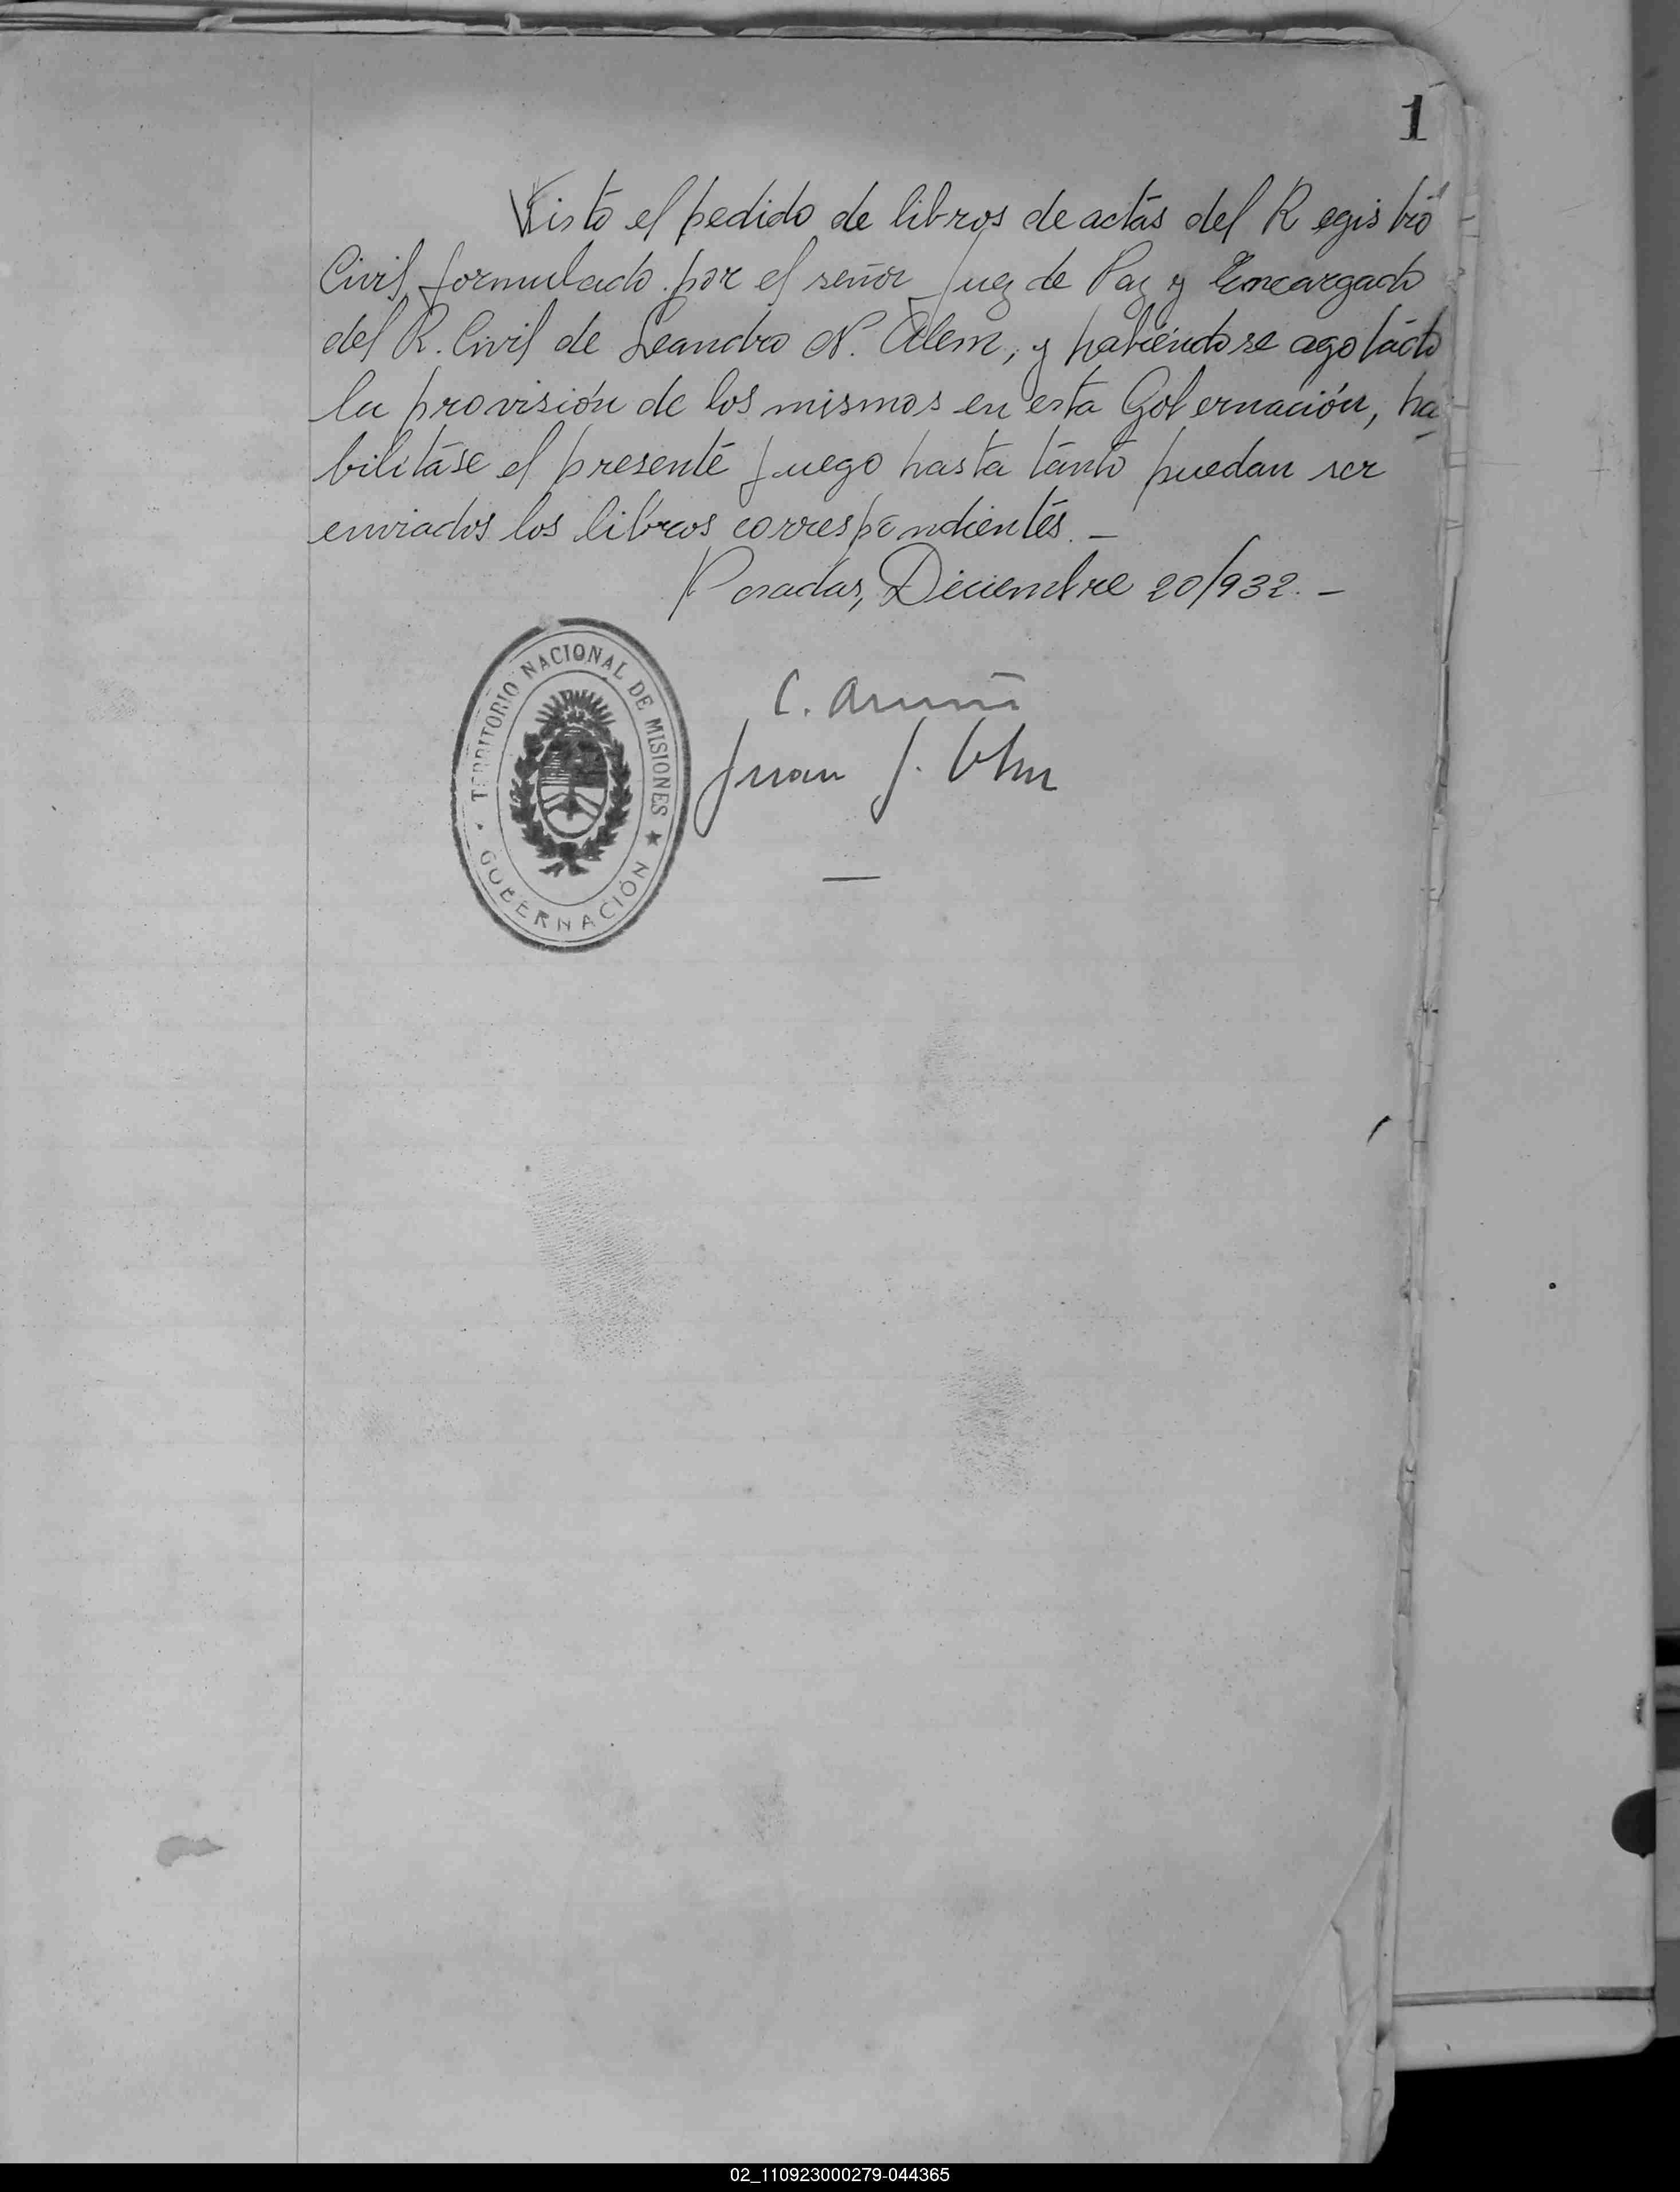 1
Visto el pedido de libros de actas del Registro
Civil formulado por el señor Juez de Paz y Encargado
del R. Civil de Leandro N. Alem, y habiéndose agotado
la provisión de los mismos en esta Gobernación, ha
bilitase el presente juego hasta tanto puedan ser
enviados los libros correspondientes. —
Posadas, Diciembre 20/932. —
TERRITORIO NACIONAL DE MISIONES
GOBERNACIÓN
C.
Juan J.
02_110923000279-044365